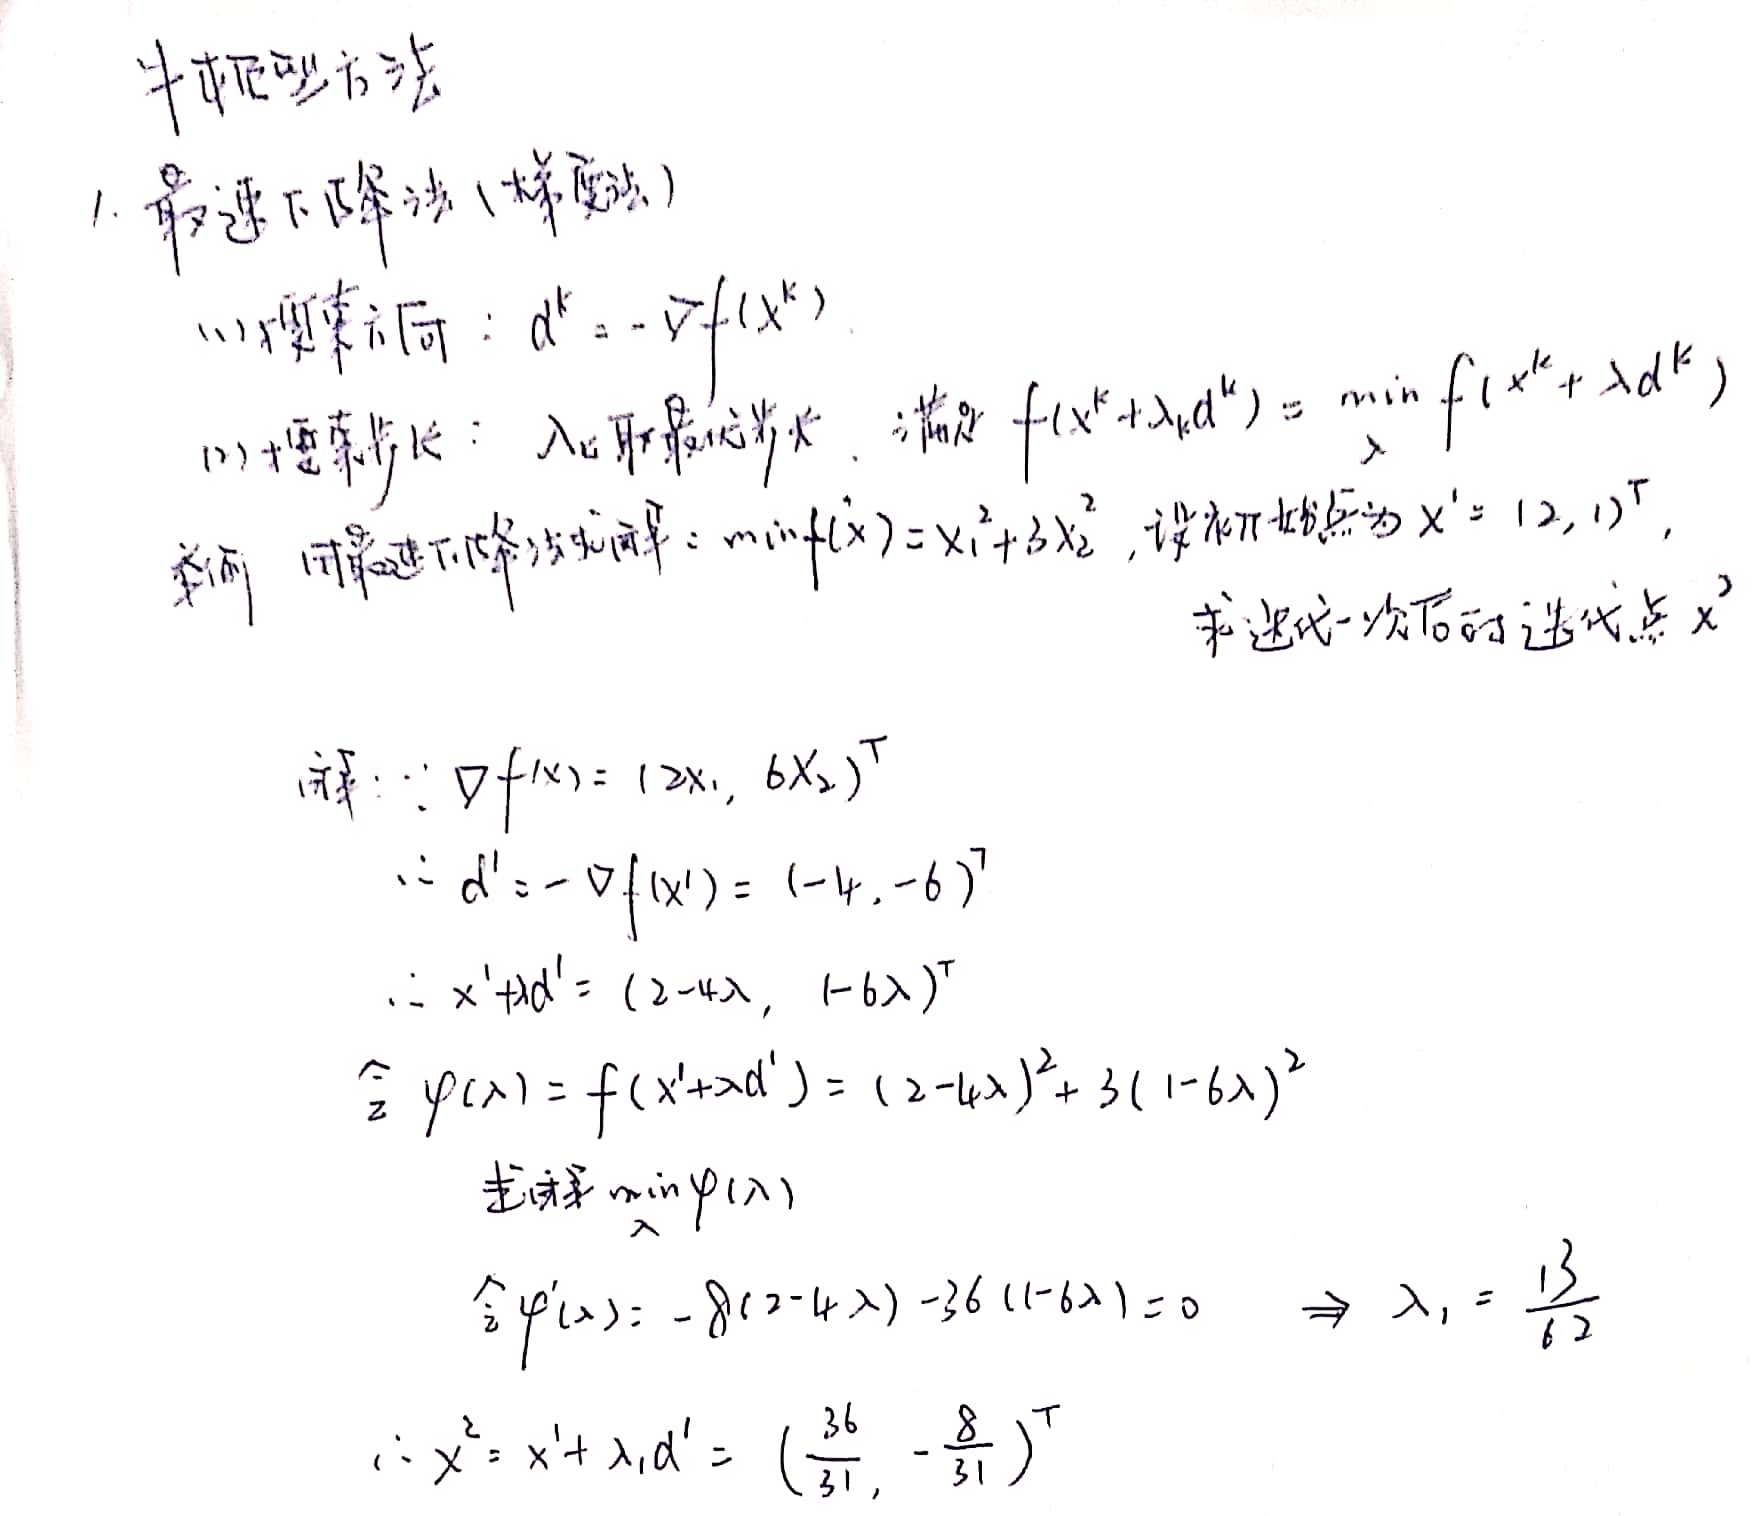 半模型方法
1. 最速下降法(梯度法)
(1) 搜索方向: dᵏ = -∇f(xᵏ)
(2) 搜索步长: λₖ取最优步长, 满足 f(xᵏ+λₖdᵏ) = min_λ f(xᵏ+λdᵏ)
举例 用最速下降法求解: min f(x) = x₁²+3x₂², 设初始点为 x¹ = (2, 1)ᵀ,
求迭代一次后的迭代点 x²
解: ∵ ∇f(x) = (2x₁, 6x₂)ᵀ
∴ d¹ = -∇f(x¹) = (-4, -6)ᵀ
∴ x¹+λd¹ = (2-4λ, 1-6λ)ᵀ
令 φ(λ) = f(x¹+λd¹) = (2-4λ)²+3(1-6λ)²
求解 min_λ φ(λ)
令 φ'(λ) = -8(2-4λ) -36(1-6λ) = 0 ⇒ λ₁ = 13/62
∴ x² = x¹+λ₁d¹ = (36/31, -8/31)ᵀ